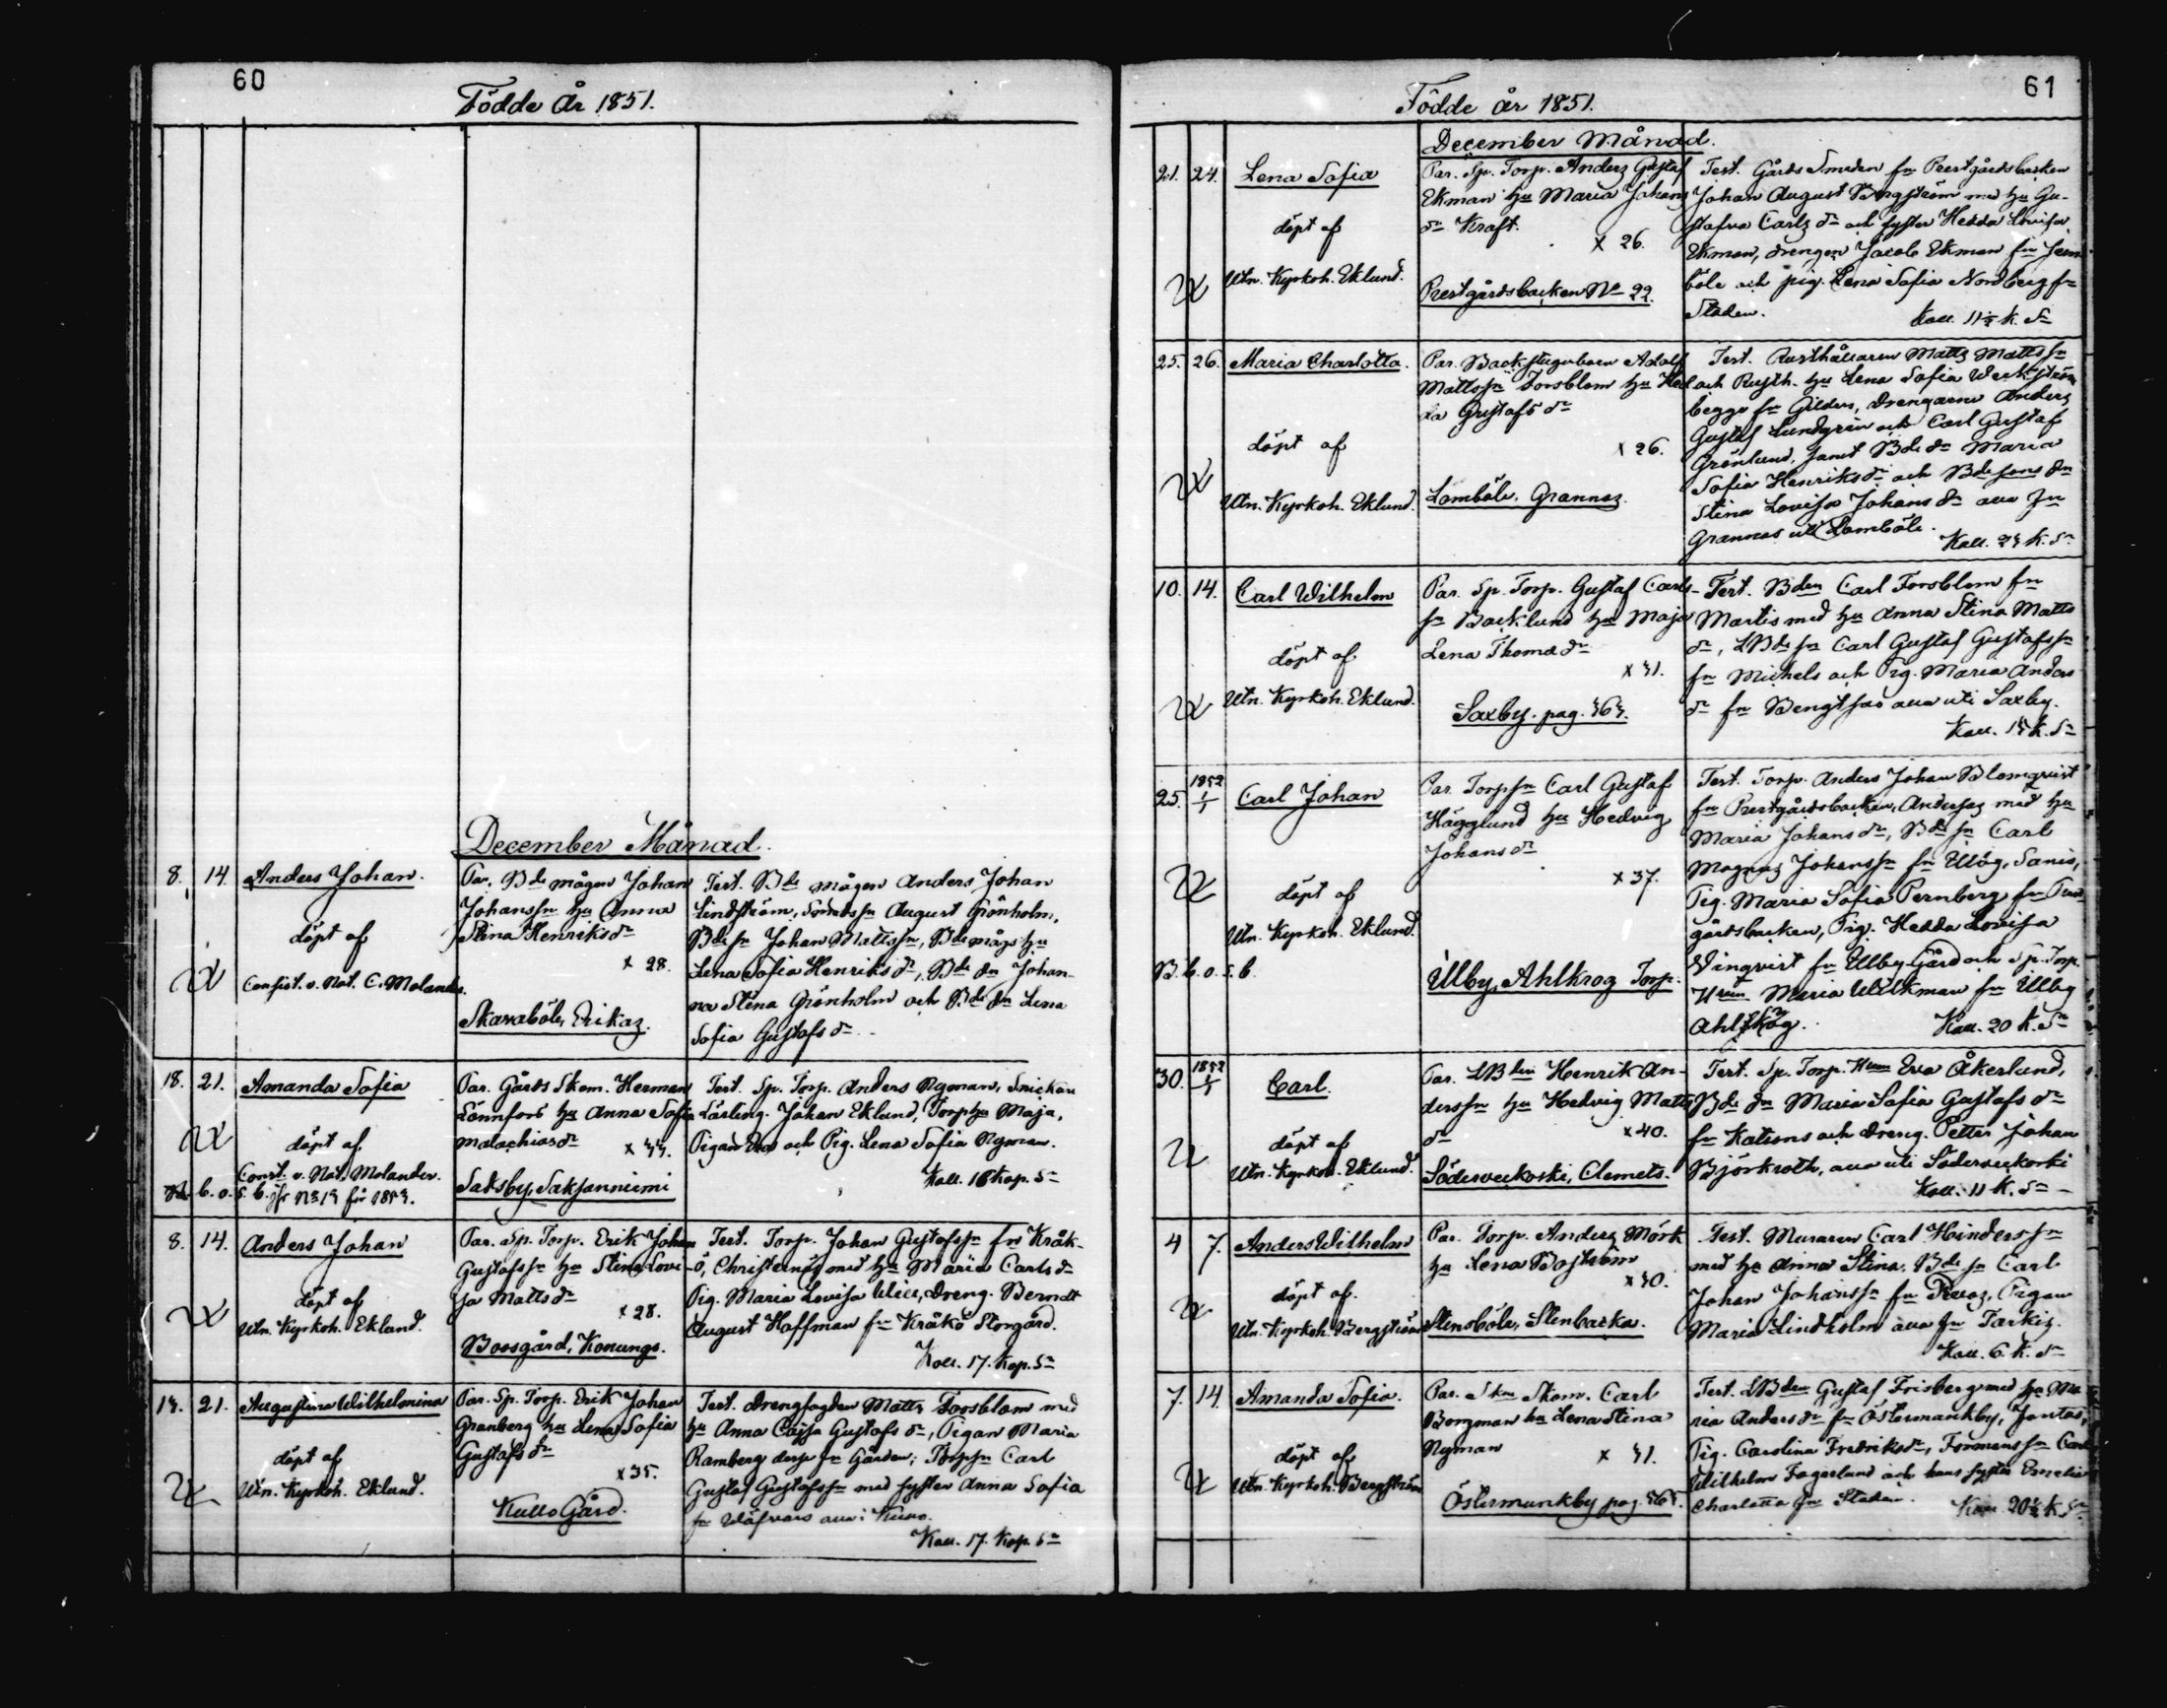 60
Födde År 1851.
December Månad.
8. 14. Anders Johan.
döpt af
Consist. v. Not. C. Molander.
Par. Bde mågen Johan
Johanssn hu Anna
Stina Henriksdr
x 28.
Skavaböle, Erikas.
Test. Bde mågen Anders Johan
Lindström, August Grönholm,
Bde sn Johan Mattssn, Bde mågs hu
Lena Sofia Henriksdr, Bde dn Johan-
na Stina Grönholm och Bde dn Lena
Sofia Gustafsdr
18. 21. Amanda Sofia
döpt af
Const. v. Not. Molander.
b. o. s. b.
Par. Gårds Skom. Herman
Lönnfors hu Anna Sofia
Malachiasdr x 44.
Saksby, Saksanniemi
Test. Sp. Torp. Anders Nyman, Snickare
Lärling. Johan Eklund, Torp hu Maja,
Pigan och Pig. Lena Sofia Nyman.
Koll. 16 Kop. Sr
8. 14. Anders Johan
döpt af
Utn. Kyrkoh. Eklund.
Par. Sp. Torp. Erik Johan
Gustafssn hu Stina Lovi-
sa Mattsdr
x 28.
Boesgård, Konungs.
Test. Torp. Johan Gustafssn frn Kråk-
ö, Christernäs med hu Maria Carlsdr
Pig. Maria Lovisa Wiik, Dreng. Berndt
August Hoffman frn Kråkö Storgård.
Koll. 17. Kop. Sr
14. 21. Augustina Wilhelmina
döpt af
Utn. Kyrkoh. Eklund.
Par. Sp. Torp. Erik Johan
Granberg hu Lena Sofia
Gustafsdr
x 35.
Kullo Gård.
Test. Drengfogden Matts Forsblom med
hu Anna Cajsa Gustafsdr, Pigan Maria
Ramberg desse frn Gården; Torpsn Carl
Gustaf Gustafssn med syster Anna Sofia
frn Wäfvars alla i Kullo.
Koll. 17. Kop. Sr
61
Födde år 1851.
December Månad.
21. 24. Lena Sofia
döpt af
Utn. Kyrkoh. Eklund.
Par. Sp. Torp. Anders Gustaf
Ekman hu Maria Johans
dr Kraft.
x 26.
Prestgårdsbacken No 22.
Test. Gårds Smeden frn Prestgårdsbacken
Johan August Bergström med hu Gu-
stafva Carlsdr och syster Hedda Lovisa
Ekman, drengen Jacob Ekman frn Jern-
böle och pig. Lena Sofia Nordberg frn
Staden.
Koll. 11½ K. Sr
25. 26. Maria Charlotta.
döpt af
Utn. Kyrkoh. Eklund.
Par. Backstugubon Adolf
Mattssn Forsblom hu Hed
da Gustafsdr
x 26.
Lomböle, Grannas.
Test. Rusthållaren Matts Mattssn
och Rusth. hu Lena Sofia Weckström
begge frn Gilders, Drengarne Anders
Gustaf Lundgrén och Carl Gustaf
Grönlund, samt Bde dr Maria
Sofia Henriksdr och Bde sons dn
Stina Lovisa Johansdr alla frn
Grannas uti Lomböle.
Koll. 24 K. Sr
10. 14. Carl Wilhelm
döpt af
Utn. Kyrkoh. Eklund.
Par. Sp. Torp. Gustaf Carls-
sn Backlund hu Maja
Lena Thomædr
x 41.
Saxby. pag. 464.
Test. Bden Carl Forsblom frn
Martis med hu Anna Stina Matts
dr, LBde sn Carl Gustaf Gustafssn
frn Michels och Pig. Maria Anders
dr frn Bengtsas alla uti Saxby.
Koll. 14 K. Sr
25. 1852 1/1 Carl Johan
döpt af
Utn. Kyrkoh. Eklund.
B. b. o. s. b.
Par. Torpsn Carl Gustaf
Hägglund hu Hedvig
Johansdr
x 37.
Illby, Ahlskog Torp.
Test. Torp. Anders Johan Blomqvist
frn Prestgårdsbacken, Andersas med hu
Maria Johansdr, Bde sn Carl
Magnus Johanssn frn Illby, Sanis,
Pig. Maria Sofia Pernberg frn Prest
gårdsbacken, Pig. Hedda Lovisa
Vinqvist frn Illby Gård och Sp. Torp.
Hrun Maria Willkman frn Illby
Ahlskog.
Koll. 20 K. Sr
30. 1852 1/1 Carl.
döpt af
Utn. Kyrkoh. Eklund.
Par. LBden Henrik An-
derssn hu Hedvig Matts
dr x 40.
Söderveckoski, Clemets.
Test. Sp. Torp. Hrun Eva Åkerlund,
Bde dn Maria Sofia Gustafsdr
frn Katisns och dreng. Petter Johan
Björkroth, alla uti Söderveckoski
Koll. 11 K. Sr
4 7. Anders Wilhelm
döpt af.
Utn. Kyrkoh. Bergström
Par. Torp. Anders Mörk
hu Lena Boström
x 40.
Stensböle, Stenbacka.
Test. Muraren Carl Hinderssn
med hu Anna Stina. Bde sn Carl
Johan Johanssn frn Pigan
Maria Lindholm alla frn Tarkis.
Koll. 6. K. Sr
7. 14. Amanda Sofia.
döpt af
Utn. Kyrkoh. Bergström
Par. Skom. Carl
Borgman hu Lena Stina
Nyman x 41.
Östermunkby pag.
Test. LBden Gustaf Frisberg med hu Ma
ria Andersdr frn Östermunkby, Jontas,
Pig. Carolina Fredriksdr, Formanssn Carl
Wilhelm Fagerlund och hans syster Emelie
Charlotta frn Staden. Koll. 20½ K. Sr